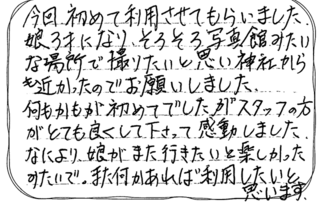 今回初めて利用させてもらいました。
娘3才になり、そろそろ写真館みたい
な場所で撮りたいと思い神社から
も近かったのでお願いしました。
何もかもが初めてでしたがスタッフの方
がとても良くして下さって感動しました。
なにより娘がまた行きたいと楽しかった
みたいで。また何かあれば利用したいと
思います。